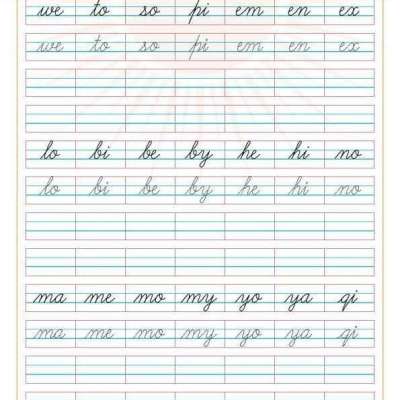 we to so pi em en ex
we to so pi em en ex
lo bi be by he hi no
lo bi be by he hi no
ma me mo my yo ya qi
ma me mo my yo ya qi